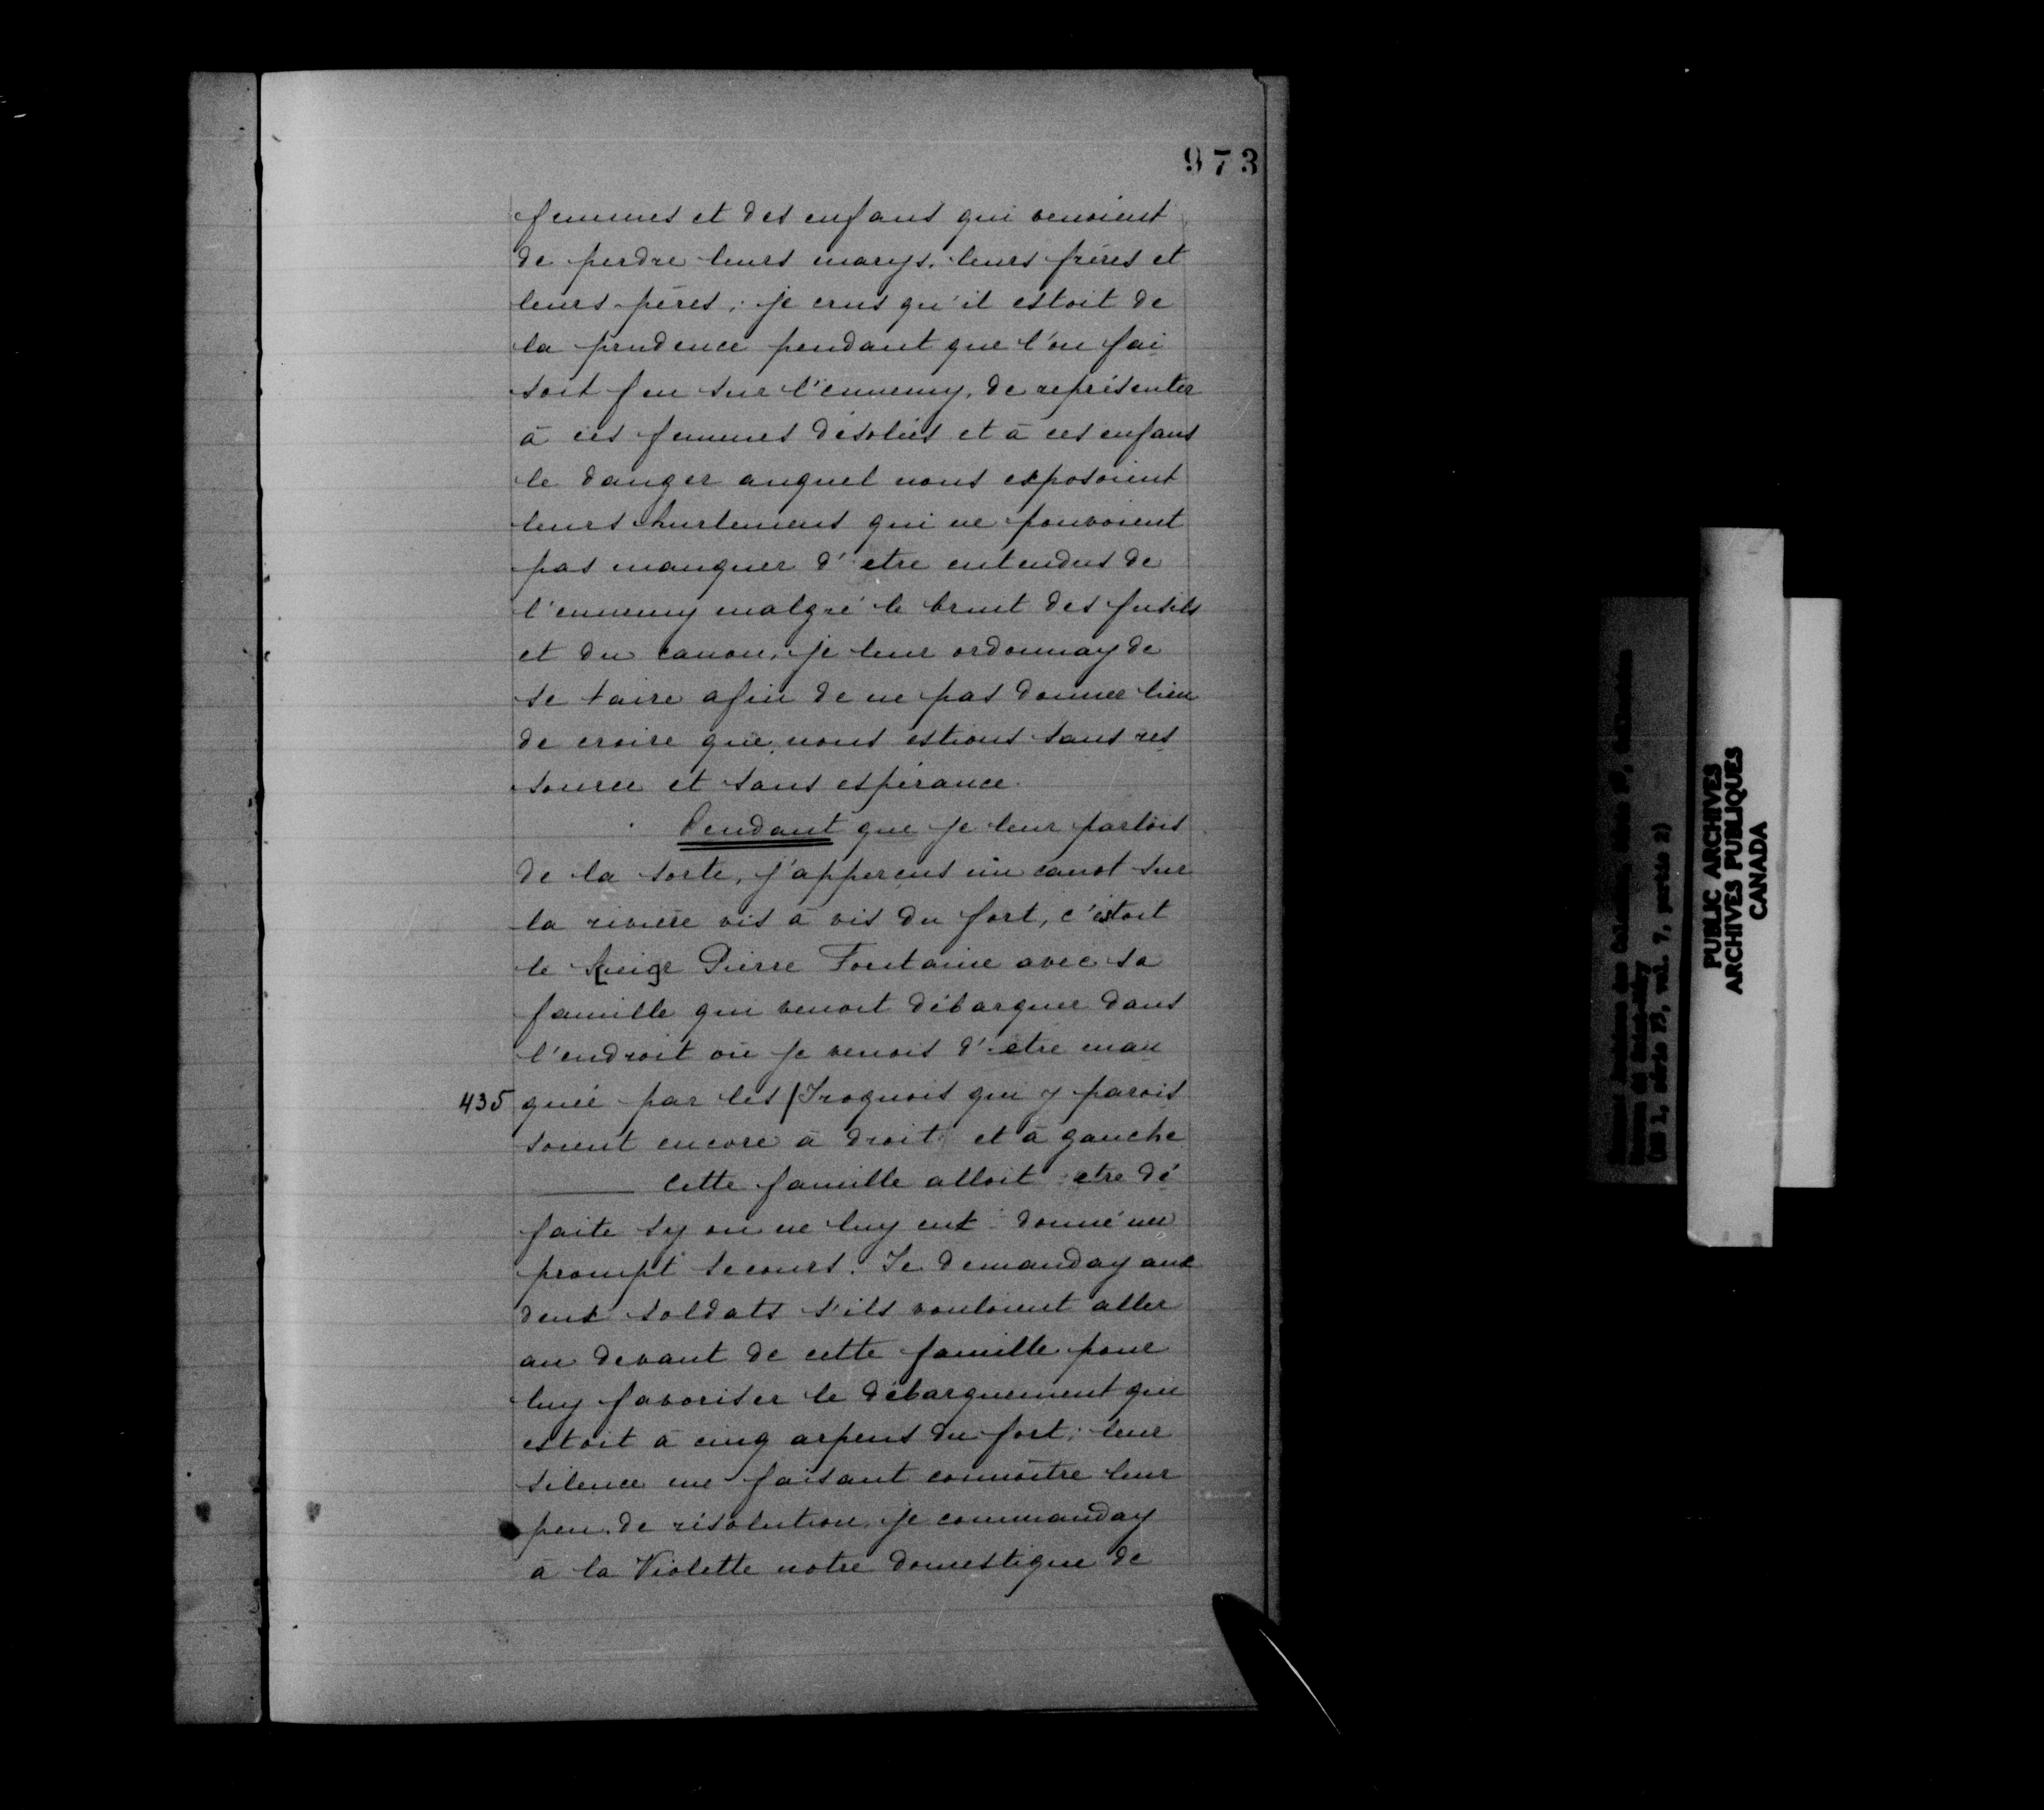 973
femmes et des enfans qui venoient
de perdre leurs marys, leurs frères et
leurs pères; je crus qu'il estoit de
la prudence pendant que l'on fai
soit feu sur l'ennemy, de représenter
à ces femmes désolées et à ces enfans
le danger auquel nous exposoient
leurs hurlemens qui ne pouvoient
pas manquer d'etre entendus de
l'ennemy malgré le bruit des fusils
et du canon, je leur ordonnay de
se taire afin de ne pas donner lieu
de croire que nous estions sans res
source et sans espérance.
Pendant que je leur parlois
de la sorte, j'apperçus un canot sur
la rivière vis à vis du fort, c'estoit
le Pierre Fontaine avec sa
famille qui venoit débarquer dans
l'endroit où je venois d'etre man
435 quée par les / Iroquois qui y parois
soient encore à droit et à gauche
Cette famille alloit etre dé
faite sy on ne luy eut donné un
prompt secours. Je demanday aux
deux soldats s'ils vouloient aller
au devant de cette famille pour
luy favoriser le débarquement qui
estoit à cinq arpens du fort; leur
silence me faisant connoître leur
peu de résolution, je commanday
à la Violette notre domestique de
PUBLIC ARCHIVES
ARCHIVES PUBLIQUES
CANADA
(MG 1, série F3, vol. 7, partie 2)